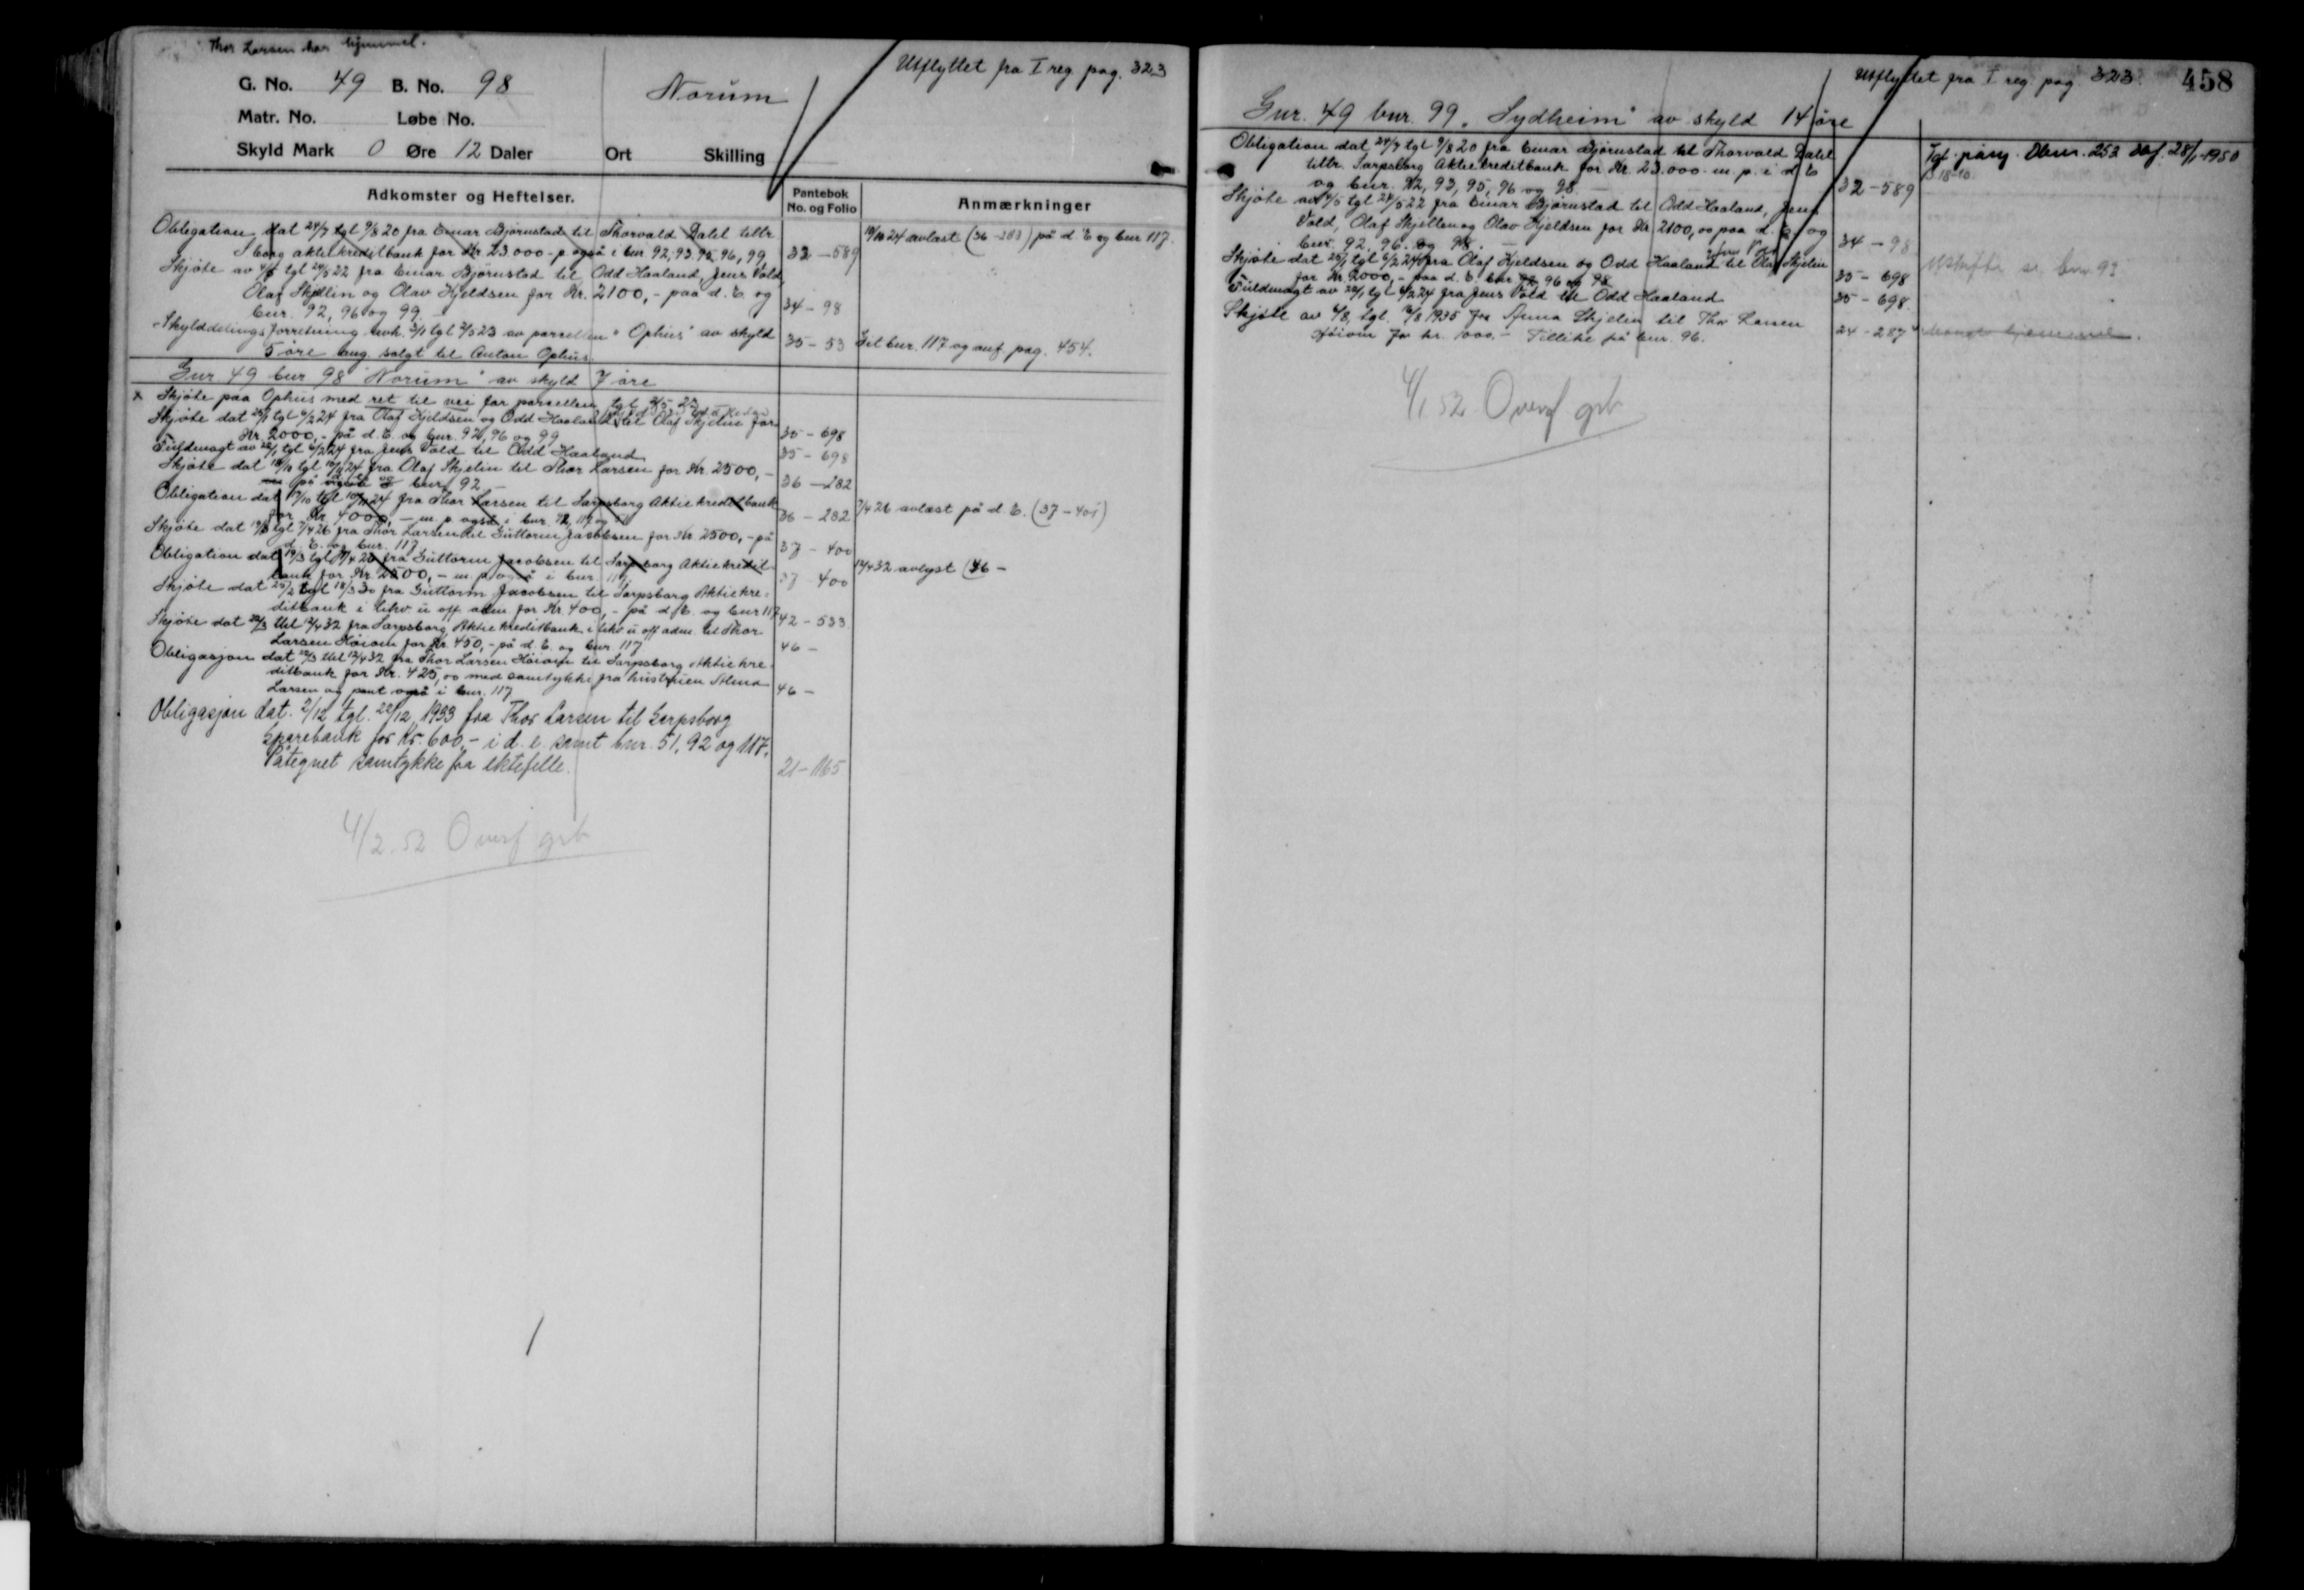 Thor Larsen har hjemmel.
G. No. 49 B. No. 98
Norum
Utflyttet fra I reg. pag. 323
Matr. No. Løbe No.
Skyld Mark 0 Øre 12 Daler Ort Skilling
Adkomster og Heftelser.
Pantebok No. og Folio
Anmærkninger
Obligation dat 24/7 tgl 9/8 20 fra Einar Bjørnstad til Thorvald Dalil tiltr.
S borg aktiekreditbank for Kr. 23.000 - p. også i bnr 92, 93, 95, 96, 99 32-589 på d. E og bnr 117.
Skjøte av tgl 24/5 22 fra Einar Bjørnstad til Odd Haaland, Jens Vold,
Olaf Skjellin og Olav Kjeldsen for Kr. 2100,- paa d. E. og
bnr. 92, 96 og 99. 34-98
Skylddelingsforretning avh. 3/1 tgl 2/5 23 av parsellen "Ophus" av skyld
5 øre ang. solgt til Anton Ophus. 35-53 Set bnr. 117 og anf. pag. 454.
Gnr 49 bnr 98 "Norum" av skyld 7 øre
x Skjøte paa Ophus med ret til vei for parsellen tgl 2/5 23
Skjøte dat 25/1 tgl 6/2 24 fra Olaf Kjeldsen og Odd Haaland til Olaf Skjelin for
Kr. 2000,- på d. E. og bnr. 92, 96 og 99 35-698
Fuldmagt av 22/1 tgl 6/2 24 fra Jens Vold til Odd Haaland 35-698
Skjøte dat 18/10 tgl fra Olaf Skjelin til Thor Larsen for Kr. 2500,-
på bnr. 92 36-282
Obligation dat tgl fra Thor Larsen til Sarpsborg Aktiekreditbank
for Kr. 4000,- m. p. også i bnr. 92, 117 og 51 36-282 7/4 26 avlæst på d. E. (37-401)
Skjøte dat 19/3 tgl 7/4 26 fra Thor Larsen til Guttorm Jacobsen for Kr. 2500,- på
d. E. og bnr. 117 37-400
Obligation dat 19/3 tgl fra Guttorm Jacobsen til Sarpsborg Aktiekredit
bank for Kr. 2500,- m. p. også i bnr. 117 37-400 12/4 32 avlyst (46-
Skjøte dat 25/2 tgl 18/3 30 fra Guttorm Jacobsen til Sarpsborg Aktiekre-
ditbank i likv. u. off. adm. for Kr. 400,- på d. E. og bnr 117 42-533
Skjøte dat 22/3 tgl 12/4 32 fra Sarpsborg Aktiekreditbank i likv. u. off adm. til Thor
Larsen Høiom for Kr. 450,- på d. E. og bnr. 117 46-
Obligasjon dat 22/3 tgl 12/4 32 fra Thor Larsen Høiom til Sarpsborg Aktiekre-
ditbank for Kr. 425,00 med samtykke fra hustruen Alma
Larsen og pant også i bnr. 117 46-
Obligasjon dat. 2/12 tgl. 22/12 1933 fra Thor Larsen til Sarpsborg
Sparebank for kr. 600,- i d. e. samt bnr. 51, 92 og 117.
Påtegnet samtykke fra ektefelle. 21-1165
4/2.52 Overf grb
Utflyttet fra I reg. pag 323.
458
Gnr. 49 bnr. 99. "Sydheim" av skyld 14 øre
Obligation dat 24/7 tgl 9/8 20 fra Einar Bjørnstad til Thorvald Dalil
tiltr. Sarpsborg Aktiekreditbank for Kr. 23.000 m. p. i d. E
og bnr. 92, 93, 95, 96 og 98 32-589
Tgl. Dbnr. 253 28/1-1950
Skjøte av tgl 24/5 22 fra Einar Bjørnstad til Odd Haaland, Jens
Vold, Olaf Skjellin og Olav Kjeldsen for Kr. 2100,00 paa d. E. og
bnr. 92, 96 og 98. 34-98
Skjøte dat 25/1 tgl 6/2 24 fra Olaf Kjeldsen og Odd Haaland til Olaf Skjelin
for Kr. 2000,- paa d. E. bnr. 92, 96 og 98 35-698
Fuldmagt av 22/1 tgl 6/2 24 fra Jens Vold til Odd Haaland 35-698.
Skjøte av 6/8, tgl. 1935 fra Anna Skjelin til Thor Larsen
Høiom for kr. 1000.- Tillike på bnr. 96. 24-287
4/1 52 Overf grb